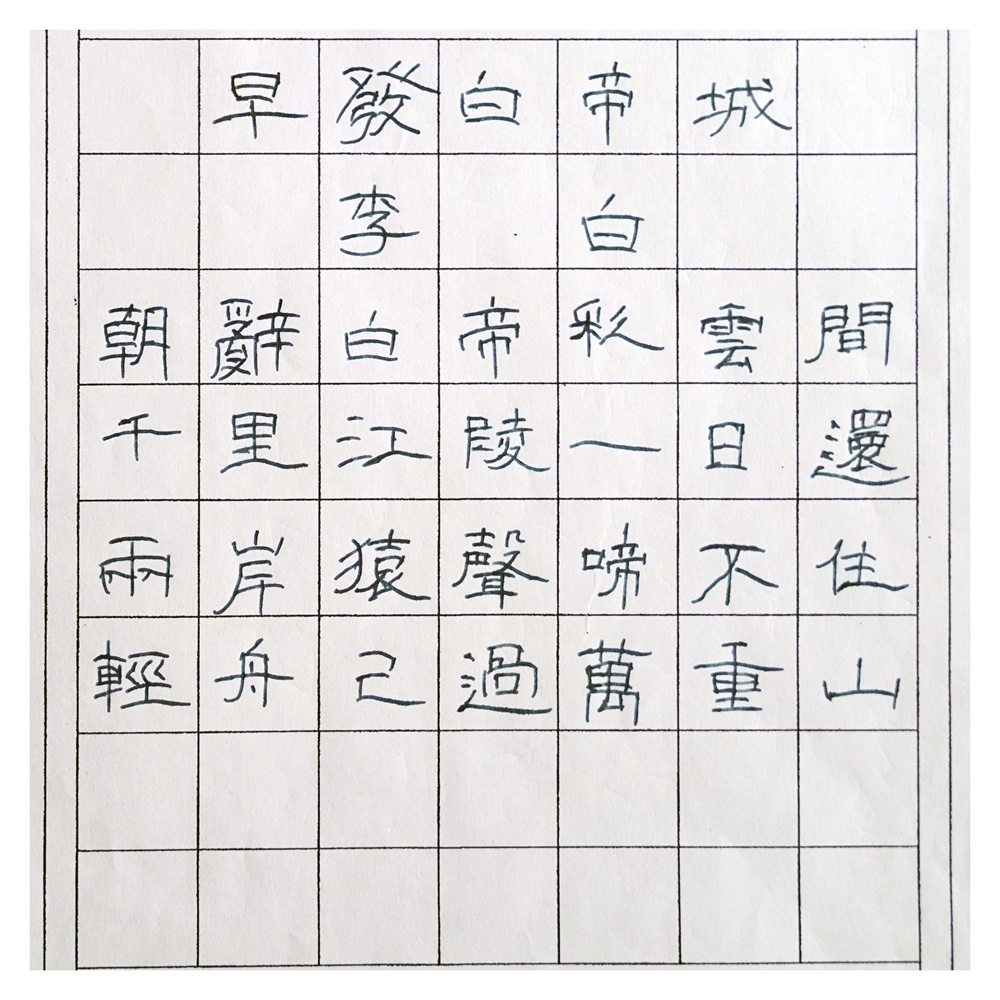 早發白帝城
李白
朝辭白帝彩雲間
千里江陵一日還
兩岸猿聲啼不住
輕舟已過萬重山